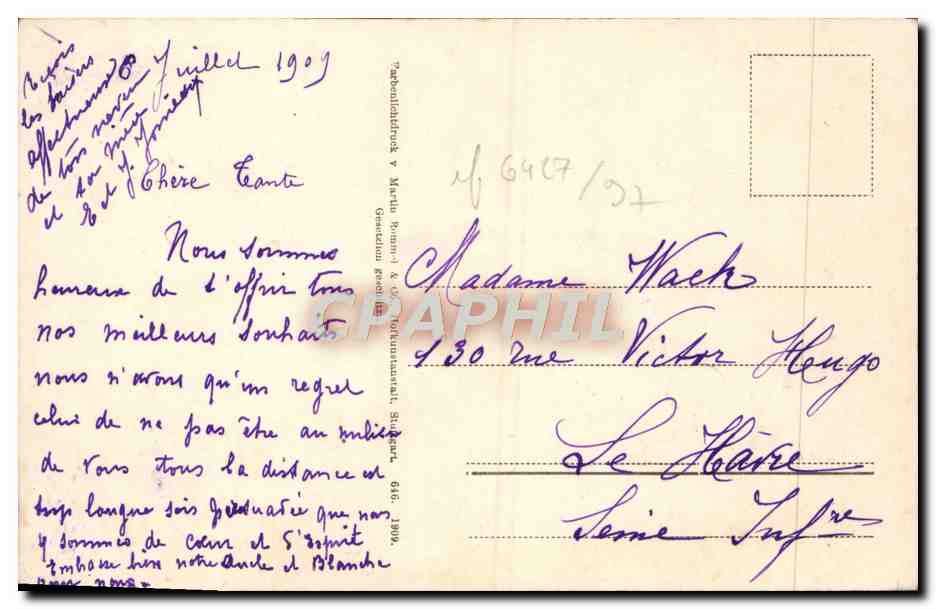 Reçois
les baisers
affectueux
de ton neveu
et ta nièce
E et J
Juillet 1909
Chère Tante
Nous sommes
heureux de t'offrir tous
nos meilleurs souhaits
nous n'avons qu'un regret
celui de ne pas être au milieu
de vous tous la distance est
trop longue sois persuadée que nous
y sommes de cœur et d'esprit
Embrasse bien notre Oncle et Blanche
pour nous
Farbenlichtdruck v. Martin Rommel & Co. Hofkunstanstalt, Stuttgart. 646. 1909.
Gesetzlich geschützt
6427/97
CPAPHIL
Madame Wack
130 rue Victor Hugo
Le Hâvre
Seine Infre